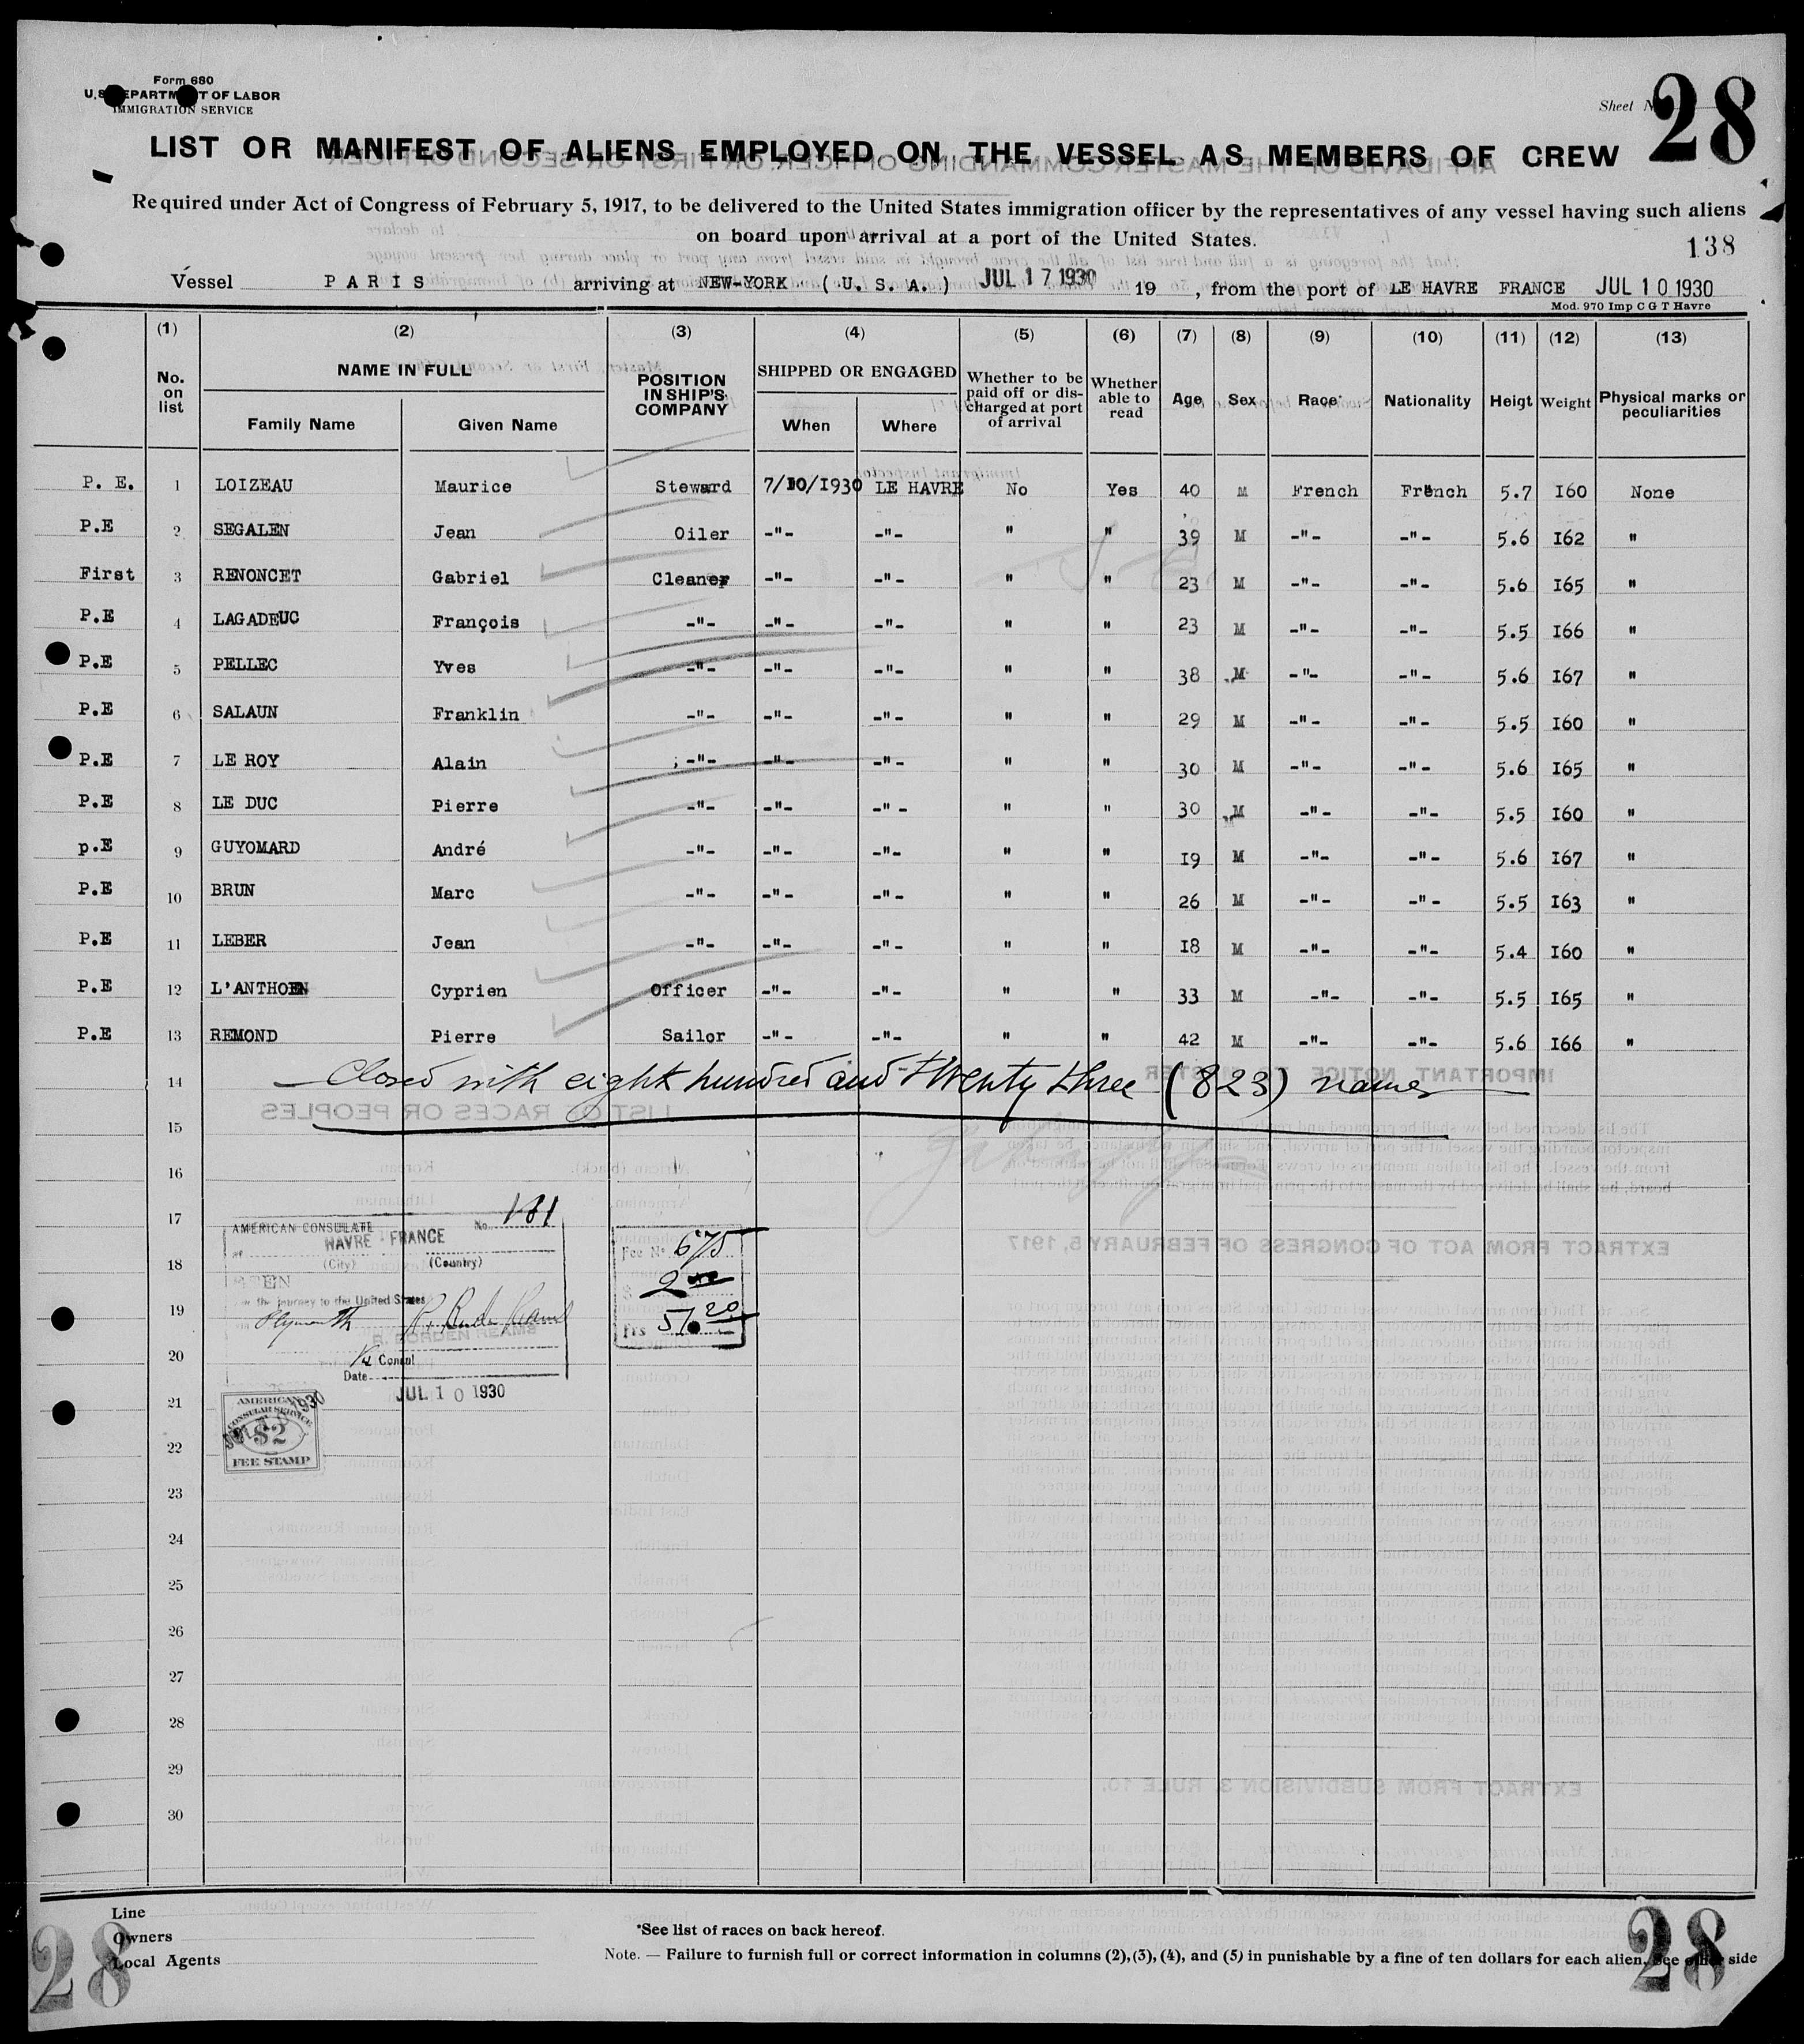 Form 680
U.S. DEPARTMENT OF LABOR
IMMIGRATION SERVICE
Sheet No 28
LIST OR MANIFEST OF ALIENS EMPLOYED ON THE VESSEL AS MEMBERS OF CREW
Required under Act of Congress of February 5, 1917, to be delivered to the United States immigration officer by the representatives of any vessel having such aliens
on board upon arrival at a port of the United States.
138
Vessel PARIS arriving at NEW-YORK ( U. S. A. ) JUL 17 1930 19 , from the port of LE HAVRE FRANCE JUL 10 1930
Mod. 970 Imp C G T Havre
(1) (2) (3) (4) (5) (6) (7) (8) (9) (10) (11) (12) (13)
No. on list NAME IN FULL Family Name Given Name POSITION IN SHIP'S COMPANY SHIPPED OR ENGAGED When Where Whether to be paid off or discharged at port of arrival Whether able to read Age Sex Race* Nationality Heigt Weight Physical marks or peculiarities
P. E. 1 LOIZEAU Maurice Steward 7/10/1930 LE HAVRE No Yes 40 M French French 5.7 160 None
P.E 2 SEGALEN Jean Oiler -"- -"- " " 39 M -"- -"- 5.6 162 "
First 3 RENONCET Gabriel Cleaner -"- -"- " " 23 M -"- -"- 5.6 165 "
P.E 4 LAGADEUC François -"- -"- -"- " " 23 M -"- -"- 5.5 166 "
P.E 5 PELLEC Yves -"- -"- -"- " " 38 M -"- -"- 5.6 167 "
P.E 6 SALAUN Franklin -"- -"- -"- " " 29 M -"- -"- 5.5 160 "
P.E 7 LE ROY Alain -"- -"- -"- " " 30 M -"- -"- 5.6 165 "
P.E 8 LE DUC Pierre -"- -"- -"- " " 30 M -"- -"- 5.5 160 "
p.E 9 GUYOMARD André -"- -"- -"- " " 19 M -"- -"- 5.6 167 "
P.E 10 BRUN Marc -"- -"- -"- " " 26 M -"- -"- 5.5 163 "
P.E 11 LEBER Jean -"- -"- -"- " " 18 M -"- -"- 5.4 160 "
P.E 12 L'ANTHOEN Cyprien Officer -"- -"- " " 33 M -"- -"- 5.5 165 "
P.E 13 REMOND Pierre Sailor -"- -"- " " 42 M -"- -"- 5.6 166 "
14 Closed with eight hundred and twenty three (823) names
15
16
17
18
19
20
21
22
23
24
25
26
27
28
29
30
AMERICAN CONSULATE No. 181
HAVRE FRANCE
(City) (Country)
the journey to the United States
Plymouth
R. BORDEN REAMS
Consul
Date
JUL 10 1930
Fee No. 675
$ 2
frs 51.20
AMERICAN
CONSULAR SERVICE
$2
FEE STAMP
Line
Owners
Local Agents
*See list of races on back hereof.
Note. — Failure to furnish full or correct information in columns (2), (3), (4), and (5) in punishable by a fine of ten dollars for each alien. See other side
28
28